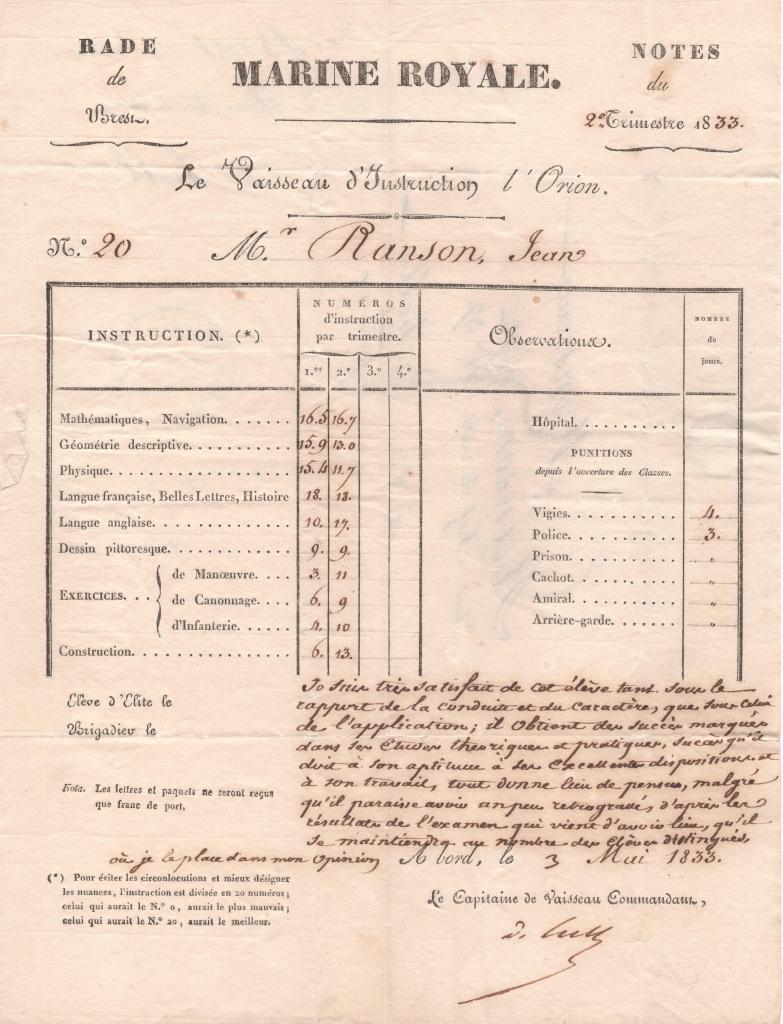 RADE
de
Brest.
MARINE ROYALE.
NOTES
du
2e Trimestre 1833.
Le Vaisseau d'Instruction l'Orion.
N.° 20 M.r Ranson, Jean
INSTRUCTION. (*)
NUMÉROS
d'instruction
par trimestre.
1.er 2.e 3.e 4.e
Observations.
NOMBRE
de
jours.
Mathématiques, Navigation. 16.5 16.7
Géométrie descriptive. 15.9 13.0
Physique. 15.4 11.7
Langue française, Belles Lettres, Histoire 18. 18.
Langue anglaise. 10. 17.
Dessin pittoresque. 9. 9.
EXERCICES.
de Manœuvre. 3. 11
de Canonnage. 6. 9
d'Infanterie. 4. 10
Construction. 6. 13.
Hôpital.
PUNITIONS
depuis l'ouverture des Classes.
Vigies. 4.
Police. 3.
Prison. „
Cachot. „
Amiral. „
Arrière-garde. „
Elève d'Elite le
Brigadier le
Nota. Les lettres et paquets ne seront reçus
que franc de port.
Je suis très satisfait de cet élève tant sous le
rapport de la conduite et du Caractère, que sous Celui
de l'application; il Obtient des succès marqués
dans ses Etudes théoriques et pratiques, succès qu'il
doit à son aptitude à ses Excellentes dispositions et
à son travail, tout donne lieu de penser, malgré
qu'il paraisse avoir un peu retrogradé, d'après les
résultats de l'examen qui vient d'avoir lieu, qu'il
se maintiendra au nombre des Elèves distingués,
où je le place dans mon Opinion
A bord, le 3 Mai 1833.
(*) Pour éviter les circonlocutions et mieux désigner
les nuances, l'instruction est divisée en 20 numéros;
celui qui aurait le N.° 0, aurait le plus mauvais;
celui qui aurait le N.° 20, aurait le meilleur.
Le Capitaine de Vaisseau Commandant,